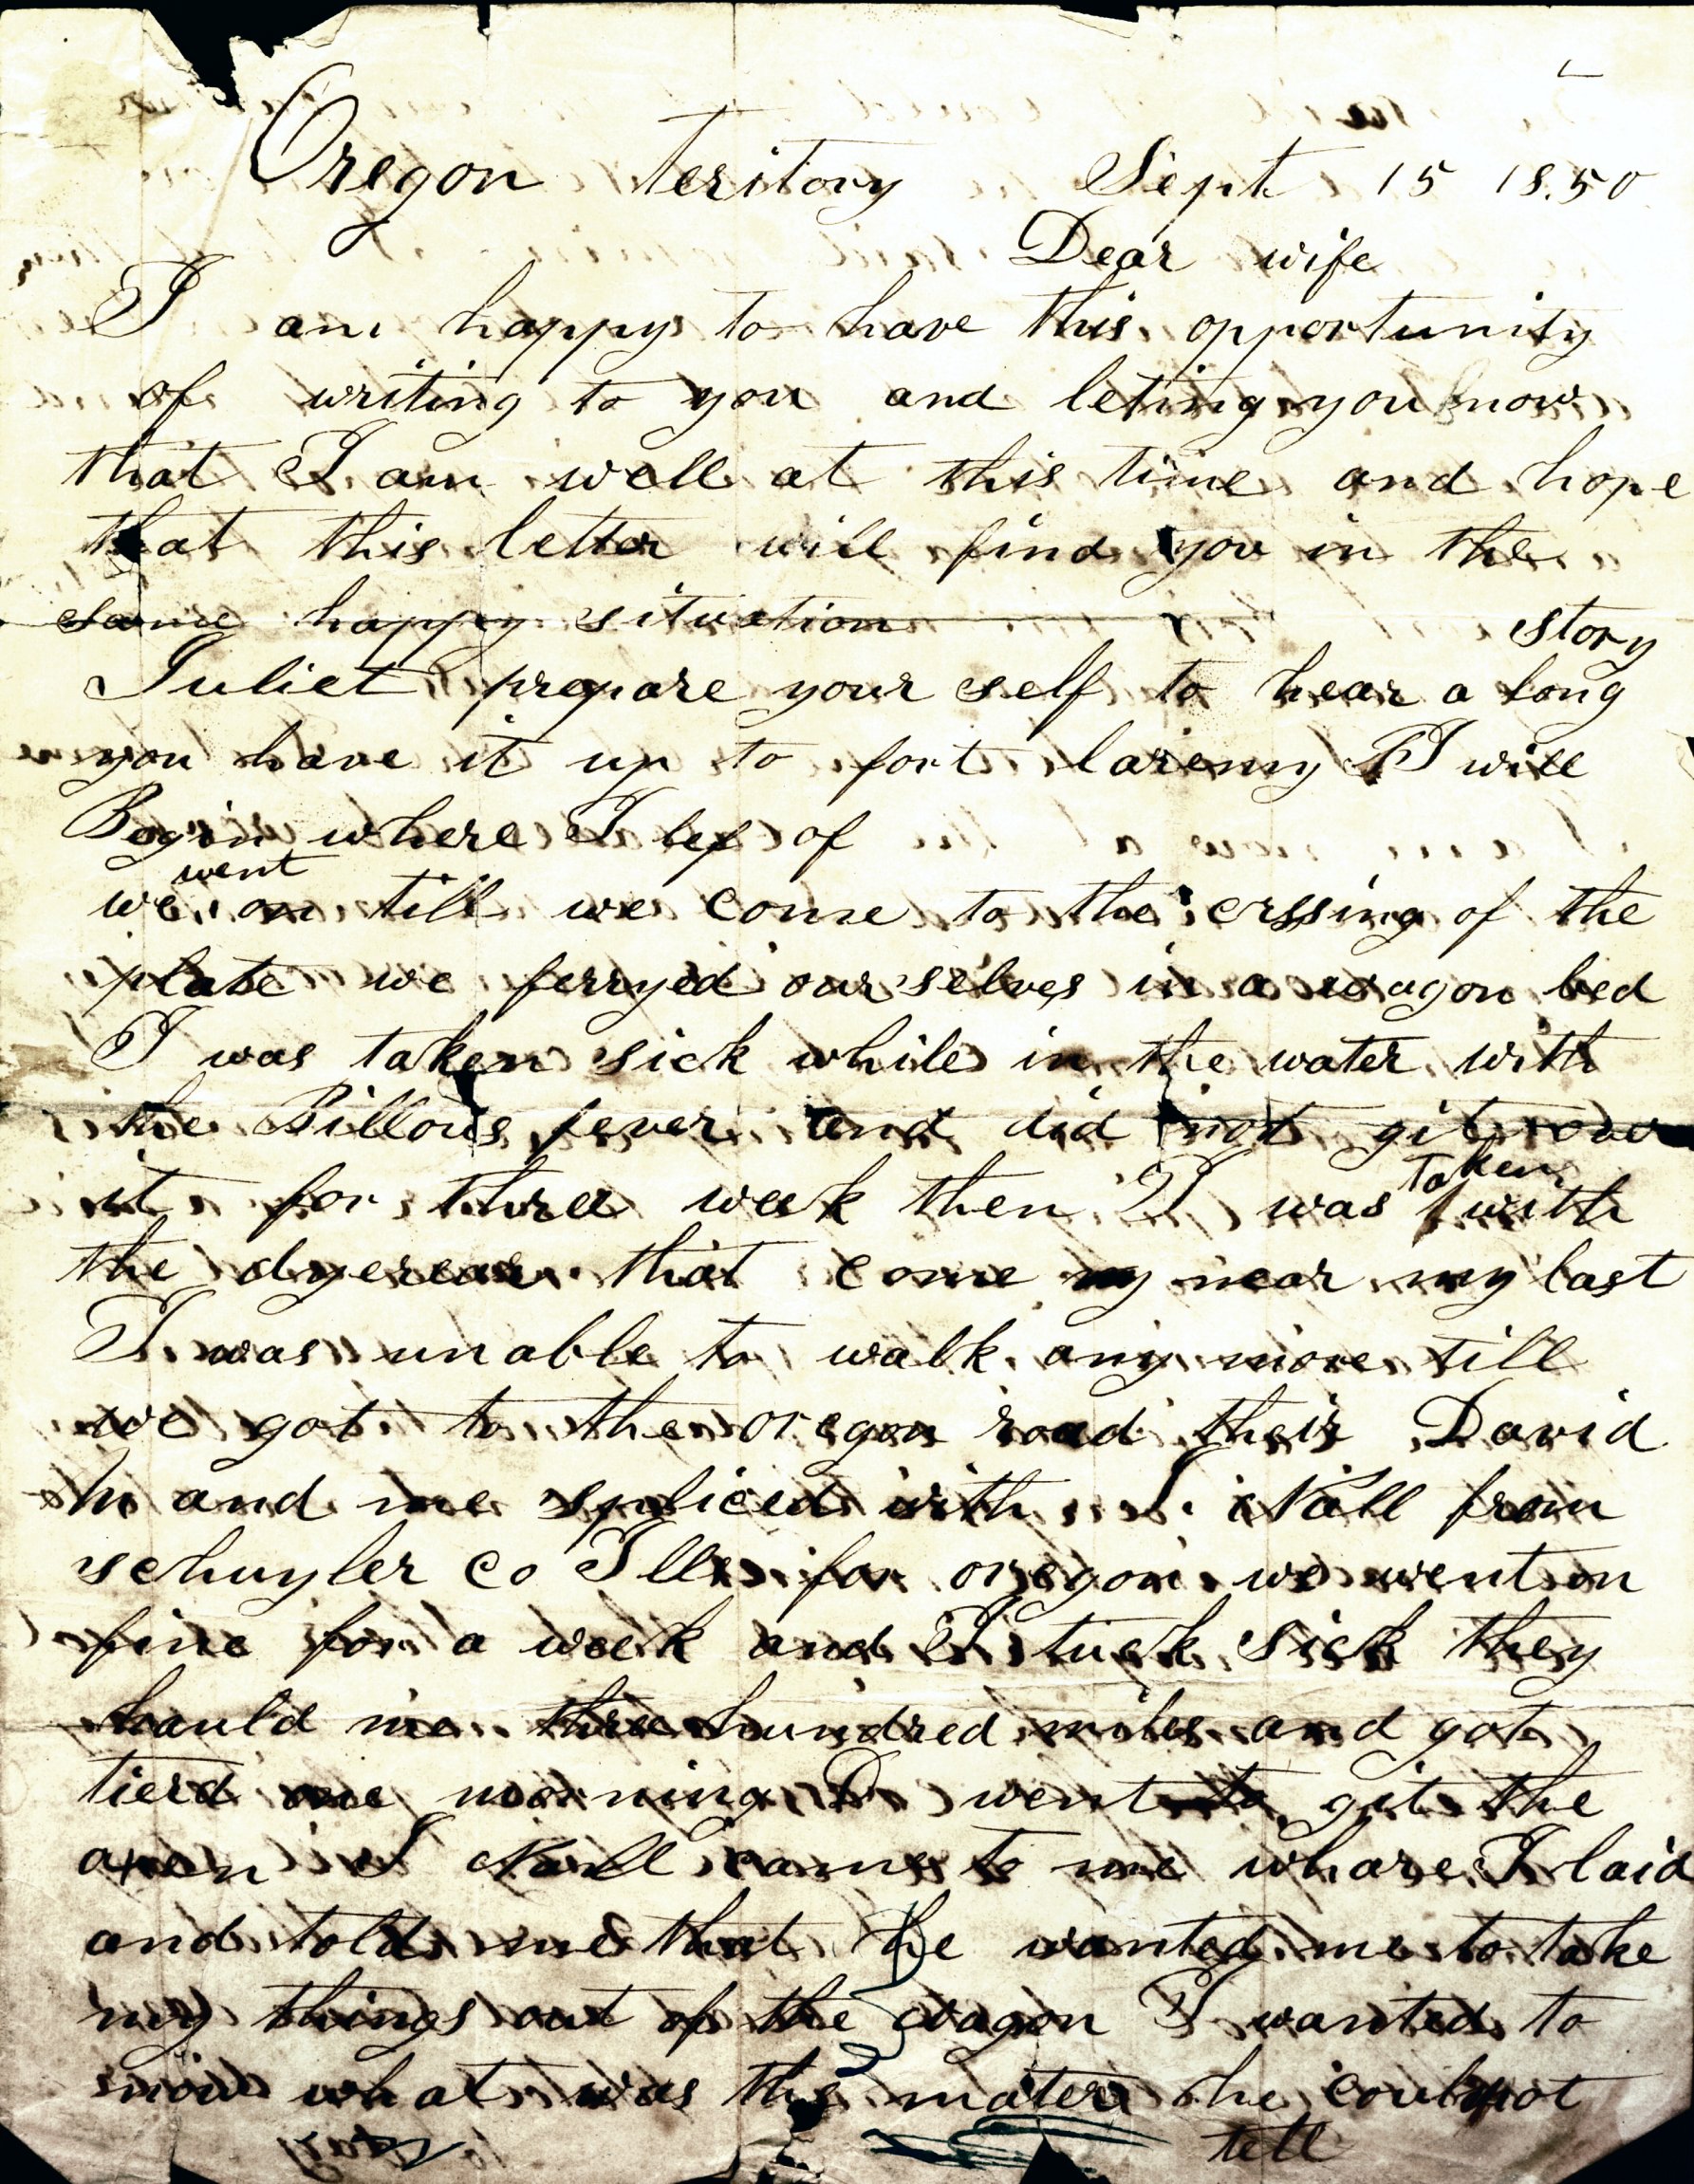 Oregon teritory Sept 15 18.50
Dear wife
I am happy to have this opportunity
of writing to you and leting you know
that I am well at this time and hope
that this letter will find you in the
same happy situation
story
Juliet prepare your self to hear a long
you have it up to fort laremy I will
Begin where I lef of
went
we on till we come to the crssing of the
plate we ferryed ourselves in a wagon bed
I was taken sick while in the water with
the Billous fever and did not git over
it for three week then I was taken with
the that come near my last
I was unable to walk any more till
we got to the oregon road their David
h and me spliced with J Nall from
schuyler co Ills for oregon we went on
fine for a week and I tuck sick they
hauld me three hundred miles and got
tierd one morning D went to git the
oxen J Nall came to me whare I laid
and told me that he wanted me to take
my things out of the wagon I wanted to
now what was the mater he could not
tell